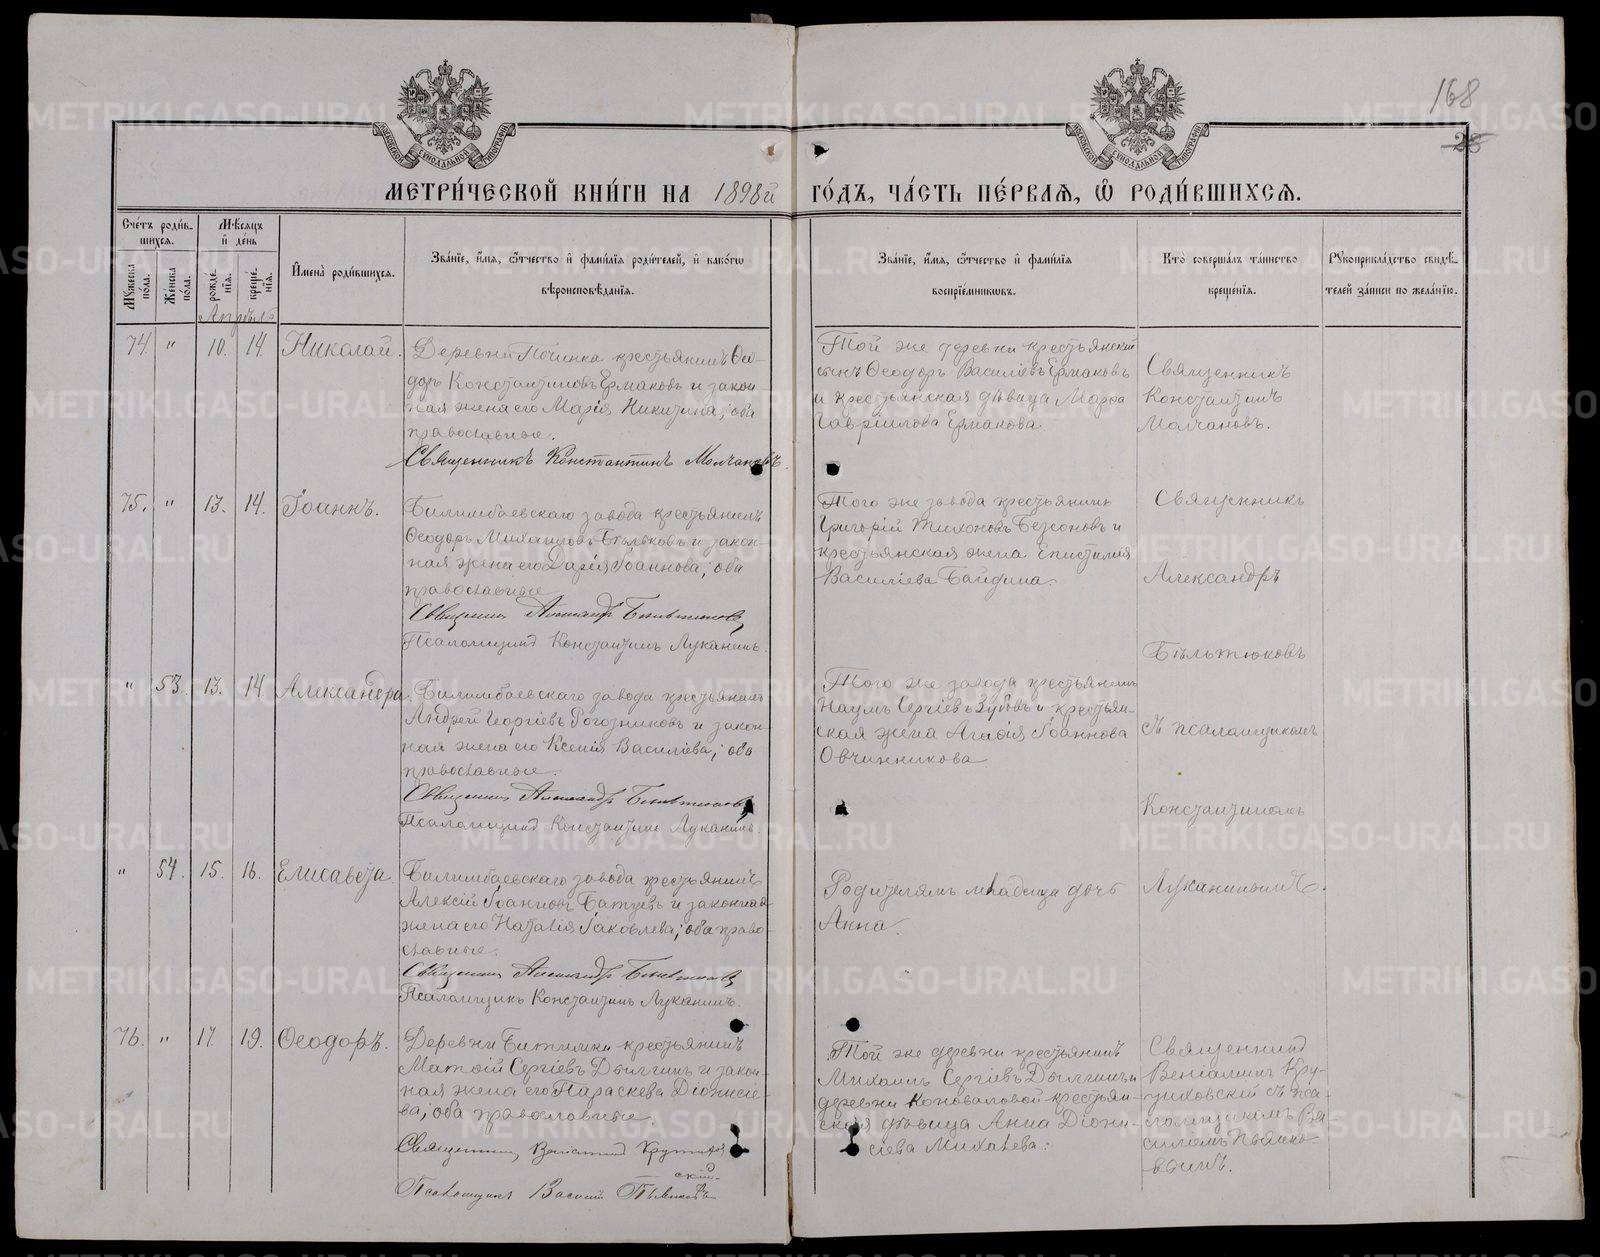 168
28
МОСКОВСКОЙ СѴНОДАЛЬНОЙ ТИПОГРАФІИ
МОСКОВСКОЙ СѴНОДАЛЬНОЙ ТИПОГРАФІИ
МЕТРИ́ЧЕСКОЙ КНИ́ГИ НА 1898й
ГО́ДЪ, ЧА́СТЬ ПЕ́РВАѦ, Ѽ РОДИ́ВШИХСѦ.
Сче́тъ роди́в-
шихсѧ.
Му́жеска по́ла.
Же́нска по́ла.
Мѣ́сѧцъ и҆ де́нь
рожде́нїѧ.
креще́нїѧ.
И҆мена̀ роди́вшихсѧ.
Зва́нїе, и҆́мѧ, ѻ҆́тчество и҆ фами́лїѧ роди́телей, и҆ како́гѡ
вѣроисповѣ́данїѧ.
Зва́нїе, и҆́мѧ, ѻ҆́тчество и҆ фами́лїѧ
воспрїе́мникѡвъ.
Кто̀ соверша́лъ та́инство
креще́нїѧ.
Рꙋкоприкла́дство свидѣ́-
телей за́писи по жела́нїю.
Апрѣль
74. " 10. 14. Николай.
Деревни Починка крестьянинъ Ѳео-
доръ Константиновъ Ермаковъ и закон-
ная жена его Марія Никитина; оба
православные.
Священникъ Константинъ Молчановъ.
Той же деревни крестьянскій
сынъ Ѳеодоръ Василіевъ Ермаковъ
и крестьянская дѣвица Марѳа
Гавріилова Ермакова.
Священникъ
Константинъ
Молчановъ.
75. " 13. 14. Іоаннъ.
Билимбаевскаго завода крестьянинъ
Ѳеодоръ Михаиловъ Бѣльковъ и закон-
ная жена его Дарія Іоаннова; оба
православные.
Священникъ Александръ Бѣльтюковъ
Псаломщикъ Константинъ Луканинъ.
Того же завода крестьянинъ
Григорій Тихоновъ Безсоновъ и
крестьянская жена Епистимія
Василіева Байдина.
Священникъ
Александръ
Бѣльтюковъ
съ псаломщикомъ
Константиномъ
Луканинымъ.
" 53. 13. 14. Александра.
Билимбаевскаго завода крестьянинъ
Андрей Георгіевъ Рогозниковъ и закон-
ная жена его Ксенія Василіева; оба
православные.
Священникъ Александръ Бѣльтюковъ
Псаломщикъ Константинъ Луканинъ
Того же завода крестьянинъ
Наумъ Сергіевъ Зубовъ и крестьян-
ская жена Агаѳія Іоаннова
Овчинникова
" 54. 15. 16. Елисавета.
Билимбаевскаго завода крестьянинъ
Алексій Іоанновъ Батуевъ и законная
жена его Наталія Іаковлева; оба право-
славные.
Священникъ Александръ Бѣльтюковъ
Псаломщикъ Константинъ Луканинъ.
Родителямъ младенца дочь
Анна.
76. " 17. 19. Ѳеодоръ.
Деревни Битимки крестьянинъ
Матѳій Сергіевъ Дылгинъ и закон-
ная жена его Параскева Діонисіе-
ва; оба православные.
Священникъ Веніаминъ Крутихов
скій.
Псаломщикъ Василій Пьянковъ
Той же деревни крестьянинъ
Михаилъ Сергіевъ Дылгинъ и
деревни Коноваловой крестьян-
ская дѣвица Анна Діони-
сіева Михалева.
Священникъ
Веніаминъ Кру-
тиховскій съ пса-
ломщикомъ Ва-
силіемъ Пьянко-
вымъ.
METRIKI.GASO-URAL.RU